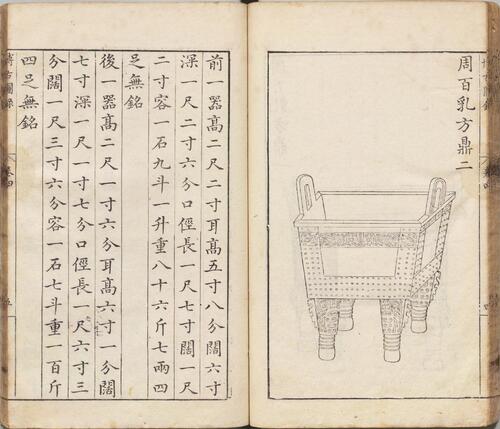 周百乳方鼎二
前一器高二尺二寸耳高五寸八分闊六寸
深一尺二寸六分口徑長一尺七寸闊一尺
二寸容一石九斗一升重八十六斤七兩四
足無銘
後一器高二尺一寸六分耳高六寸一分闊
七寸深一尺一寸七分口徑長一尺六寸三
分闊一尺三寸六分容一石七斗重一百斤
四足無銘
博古圖錄
卷四
五